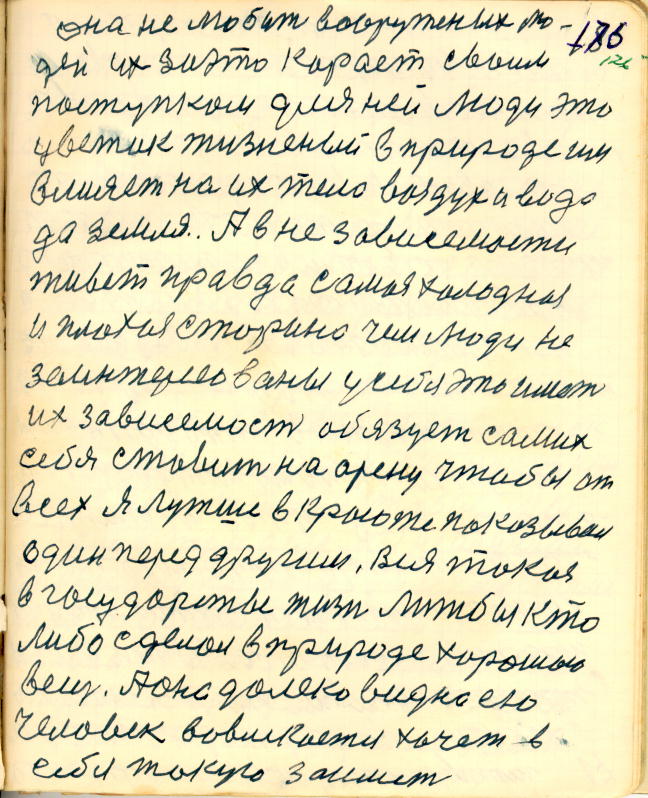 она не любит вооруженых лю- 126
дей их заэто карает своим 126
поступком для ней люди это
цветик жизненый в природе им
влияет на их тело воздух и вода
да земля.. А в не зависемости
живет правда самая холодная
и плохая сторона чем люди не
заинтересованы у себя это имет
их зависемост обязует самих
себя ставит на арену чтобы от
всех я лутше в красоте показывал
один перед другим. Вся такая
в государстве жизн литбы кто
либо сделал в природе хорошою
вещ. А она далеко видна ею
человек вовлекается хочет в
себя такую заимет